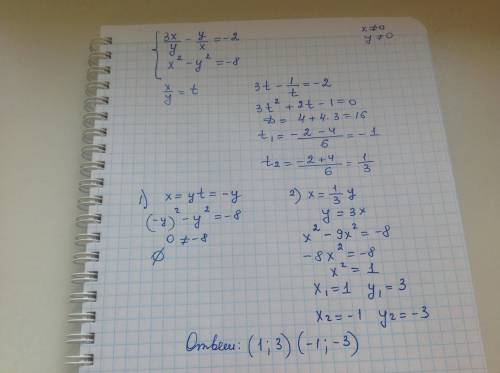 { 3x/y - y/x = -2
x² - y² = -8
x ≠ 0
y ≠ 0
x/y = t
3t - 1/t = -2
3t² + 2t - 1 = 0
D = 4 + 4·3 = 16
t₁ = (-2-4)/6 = -1
t₂ = (-2+4)/6 = 1/3
1) x = yt = -y
(-y)² - y² = -8
0 ≠ -8
∅
2) x = 1/3 y
y = 3x
x² - 9x² = -8
-8x² = -8
x² = 1
x₁ = 1 y₁ = 3
x₂ = -1 y₂ = -3
Ответ: (1; 3) (-1; -3)